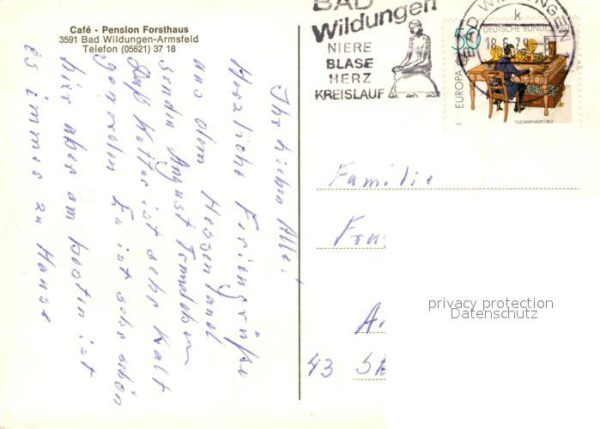 Café - Pension Forsthaus
3591 Bad Wildungen-Armsfeld
Telefon (05621) 37 18
Ihr lieben Alle!
Herzliche Feriengrüße
aus dem Hessenland
senden August
kalt
geworden Es ist sehr schön
hier aber am besten ist
es immer zu Hause
BAD
Wildungen
NIERE
BLASE
HERZ
KREISLAUF
BAD WILDUNGEN
k
50
DEUTSCHE BUNDES
EUROPA
Familie
43
privacy protection
Datenschutz